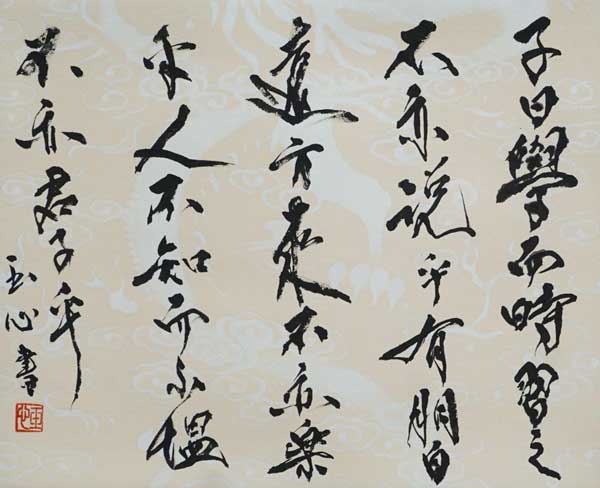 子曰學而時習之
不亦说乎有朋自
遠方來不亦樂
乎人不知而不慍
不亦君子乎
玉心書